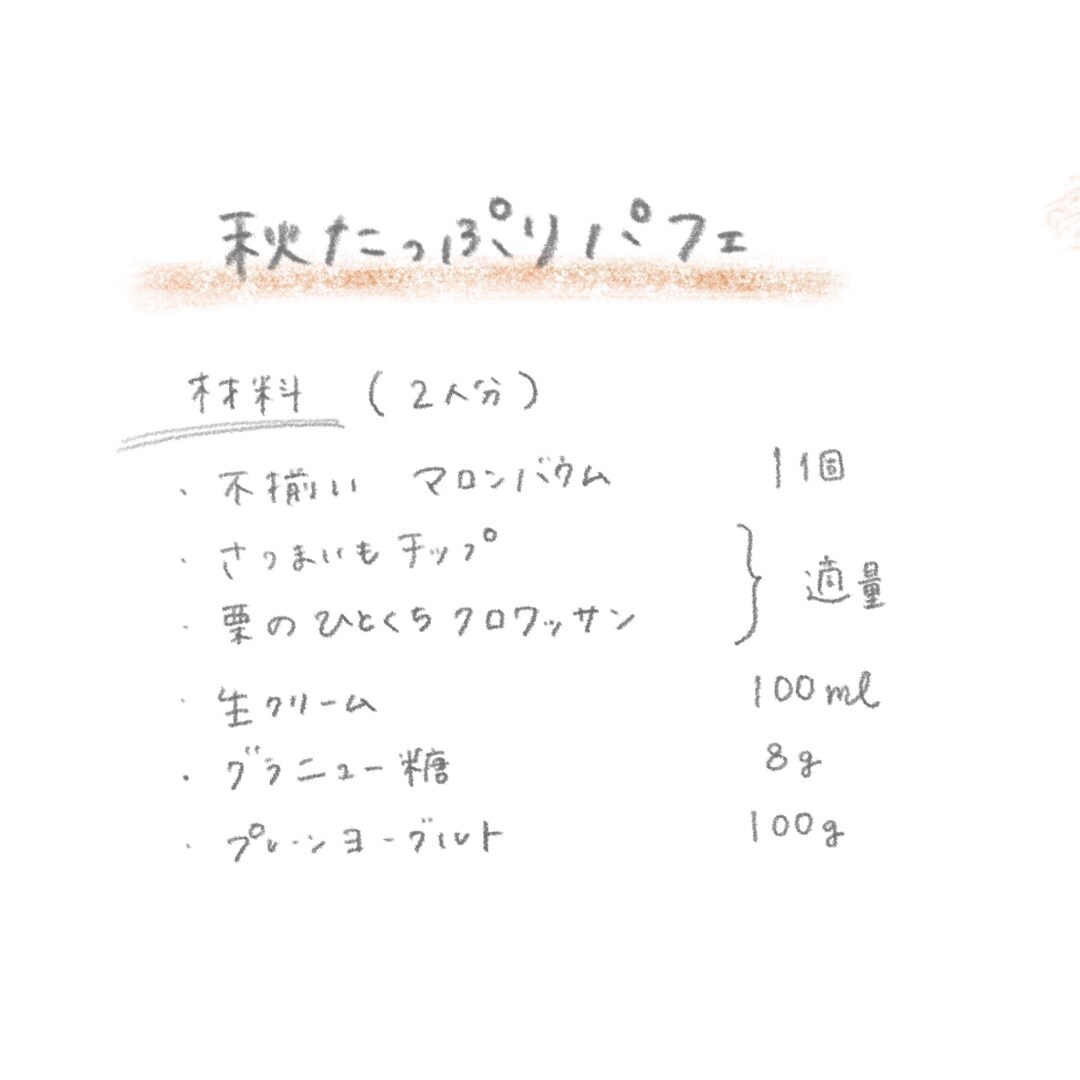 秋たっぷりパフェ
材料 (2人分)
・不揃い マロンバウム 1個
・さつまいもチップ
・栗のひとくちクロワッサン
適量
・生クリーム 100ml
・グラニュー糖 8g
・プレーンヨーグルト 100g